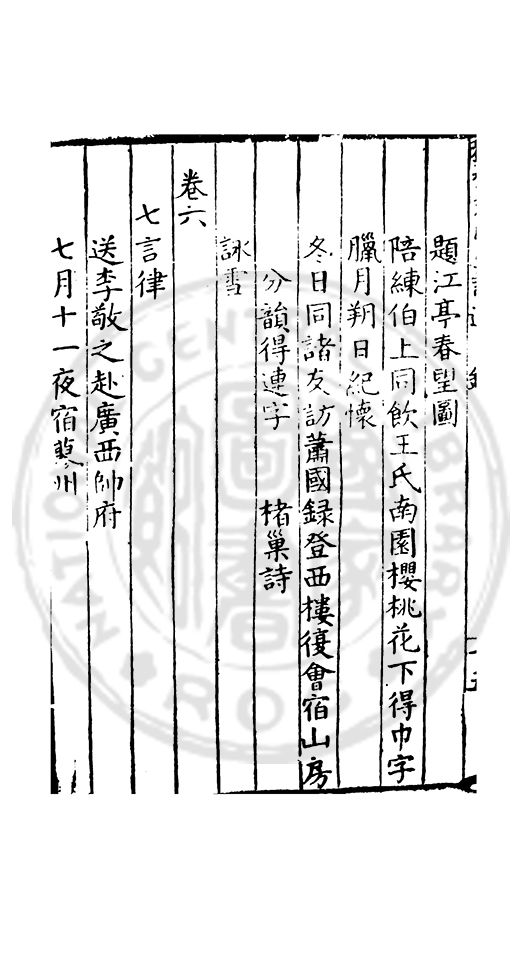 題江亭春望圖
陪練伯上同飲王氏南園櫻桃花下得巾字
臘月朔日紀懷
冬日同諸友訪蕭國録登西樓復會宿山房
分韻得連字　楮巢詩
詠雪
卷六
七言律
送李敬之赴廣西帥府
七月十一夜宿鄚州
NATIONAL CENTRAL LIBRARY